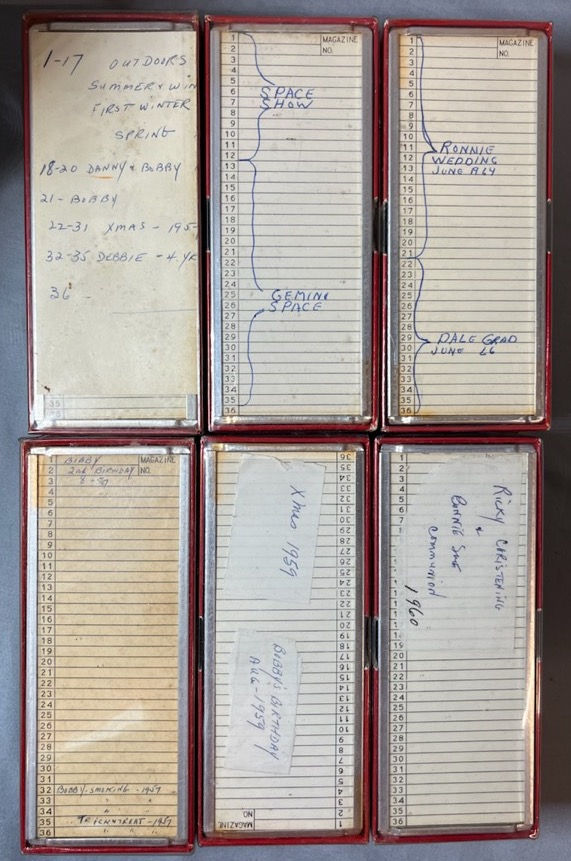 1-17 OUTDOORS
SUMMER & WIN
FIRST WINTER
SPRING
18-20 DANNY & BOBBY
21- BOBBY
22-31 XMAS - 195
32-35 DEBBIE - 4 YR
36 -
35
MAGAZINE
NO.
1
2
3
4
5
6
7
8
9
10
11
12
13
14
15
16
17
18
19
20
21
22
23
24
25
26
27
28
29
30
31
32
33
34
35
36
SPACE
SHOW
GEMINI
SPACE
MAGAZINE
NO.
1
2
3
4
5
6
7
8
9
10
11
12
13
14
15
16
17
18
19
20
21
22
23
24
25
26
27
28
29
30
31
32
33
34
35
36
RONNIE
WEDDING
JUNE
DALE GRAD
JUNE 66
MAGAZINE
NO.
1 BOBBY
2 2nd BIRTHDAY
3
4
5
6
7
8
9
10
11
12
13
14
15
16
17
18
19
20
21
22
23
24
25
26
27
28
29
30
31
32 BOBBY-SMOKING -1957
33
34
35 TRICKNTREAT-1957
36
36
35
34
33
32
31
30
29
28
27
26
25
24
23
22
21
20
19
18
17
16
15
14
13
12
11
10
9
8
7
6
5
4
3
2
1
MAGAZINE
NO.
Xmas 1959
BOBBY'S BIRTHDAY
AUG-1959
1
2
3
4
5
6
7
19
20
21
22
23
24
25
26
27
28
29
30
31
32
33
34
35
36
RICKY CHRISTENING
&
BONNIE SUE
COMMUNION
1960